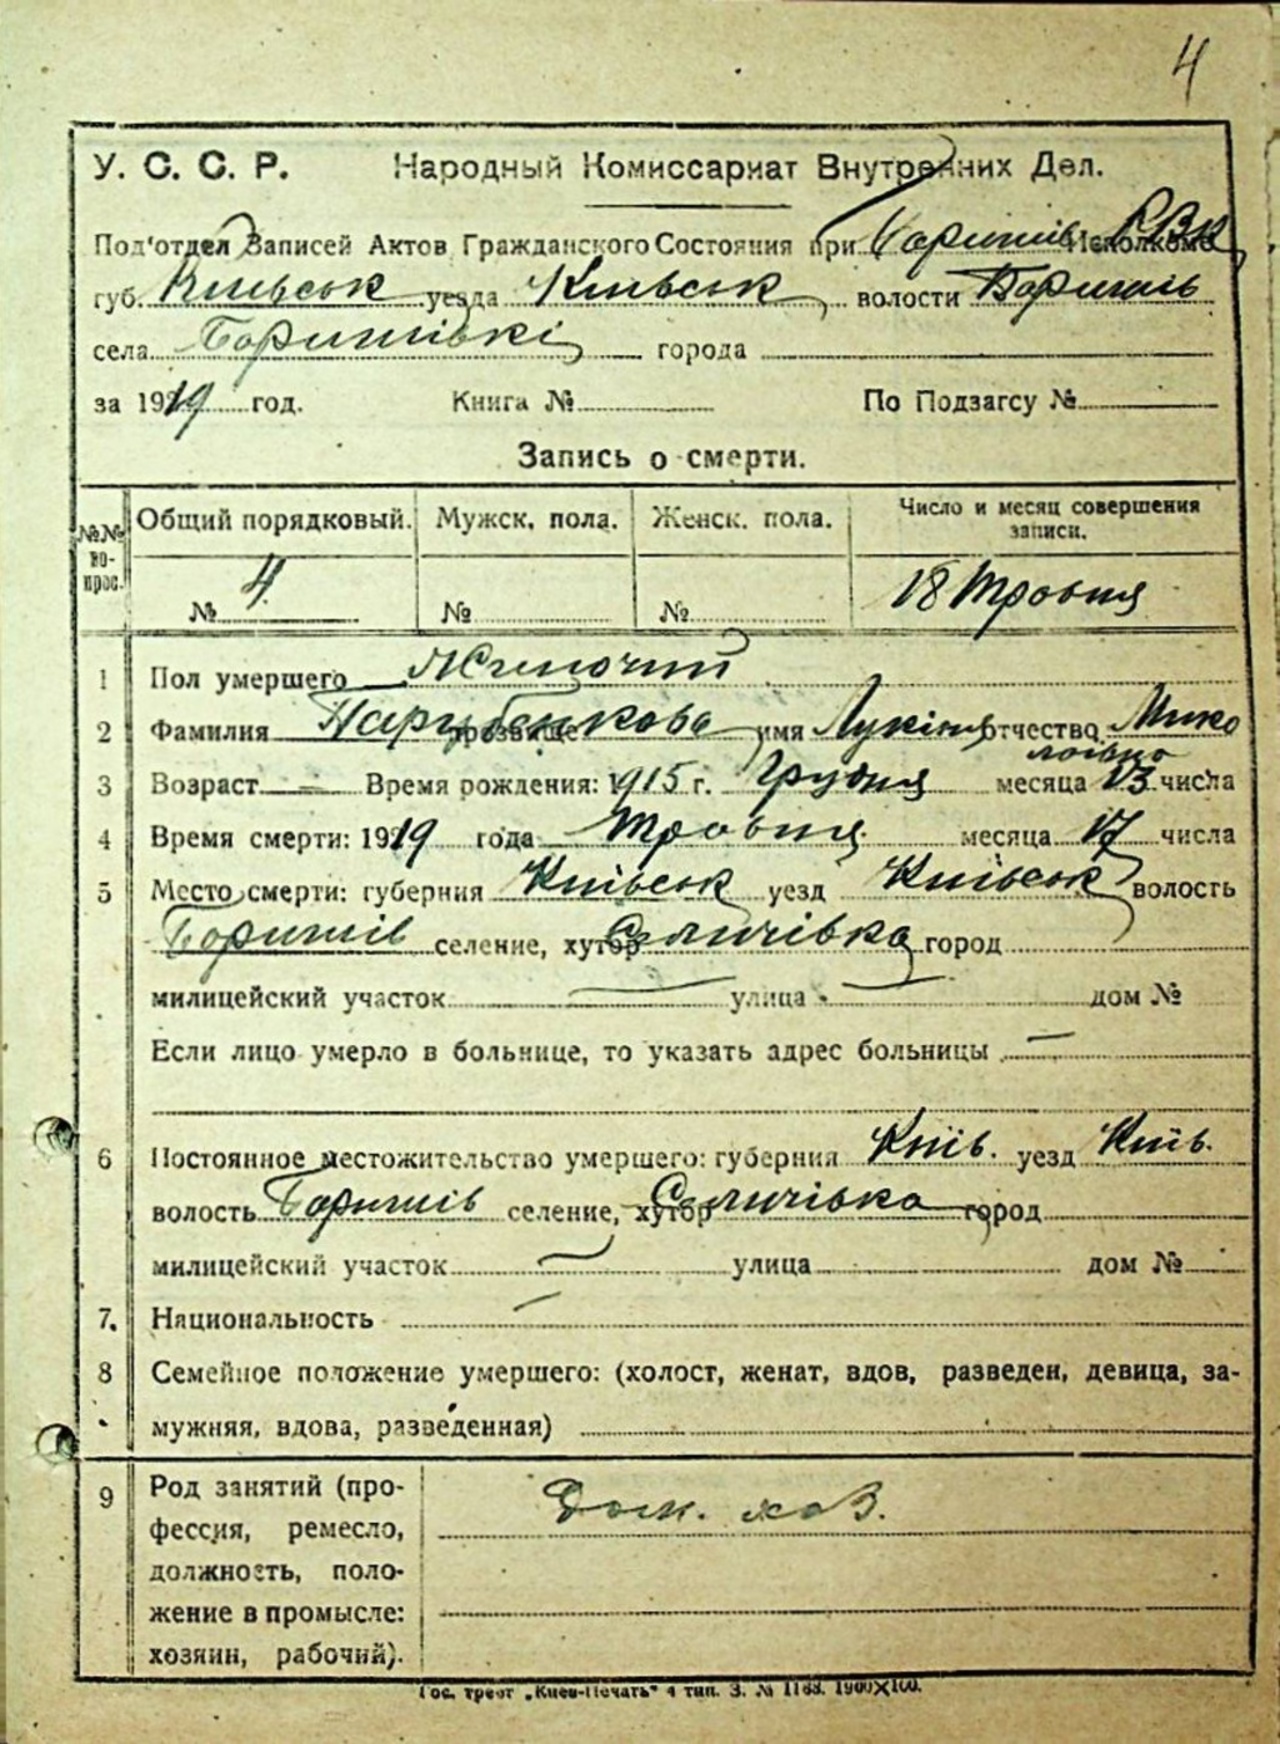 4
У. С. С. Р. Народный Комиссариат Внутренних Дел.
Под'отдел Записей Актов Гражданского Состояния при Баришів. РВК Исполкоме
губ. Київськ уезда Київськ волости Баришів
села Баришівкі города
за 1919 год. Книга № По Подзагсу №
Запись о смерти.
№№ вопрос. Общий порядковый. Мужск. пола. Женск. пола. Число и месяц совершения записи.
№ 4 № № 18 Травня
1 Пол умершего Жіночий
2 Фамилия прозвище Парубенкова имя Лукія отчество Мико
лаївна
3 Возраст — Время рождения: 1915 г. Грудня месяца 13 числа
4 Время смерти: 1919 года Травня месяца 17 числа
5 Место смерти: губерния Київськ уезд Київськ волость
Баришів селение, хутор Селичівка город
милицейский участок — улица — дом №
Если лицо умерло в больнице, то указать адрес больницы —
6 Постоянное местожительство умершего: губерния Київ. уезд Київ.
волость Баришів селение, хутор Селичівка город
милицейский участок — улица дом №
7. Национальность —
8 Семейное положение умершего: (холост, женат, вдов, разведен, девица, за-
мужняя, вдова, разведенная)
9 Род занятий (про- Дом. хаз.
фессия, ремесло,
должность, поло-
жение в промысле:
хозяин, рабочий).
Гос. трест „Киев-Печать" 4 тип. З. № 1168. 1900×100.